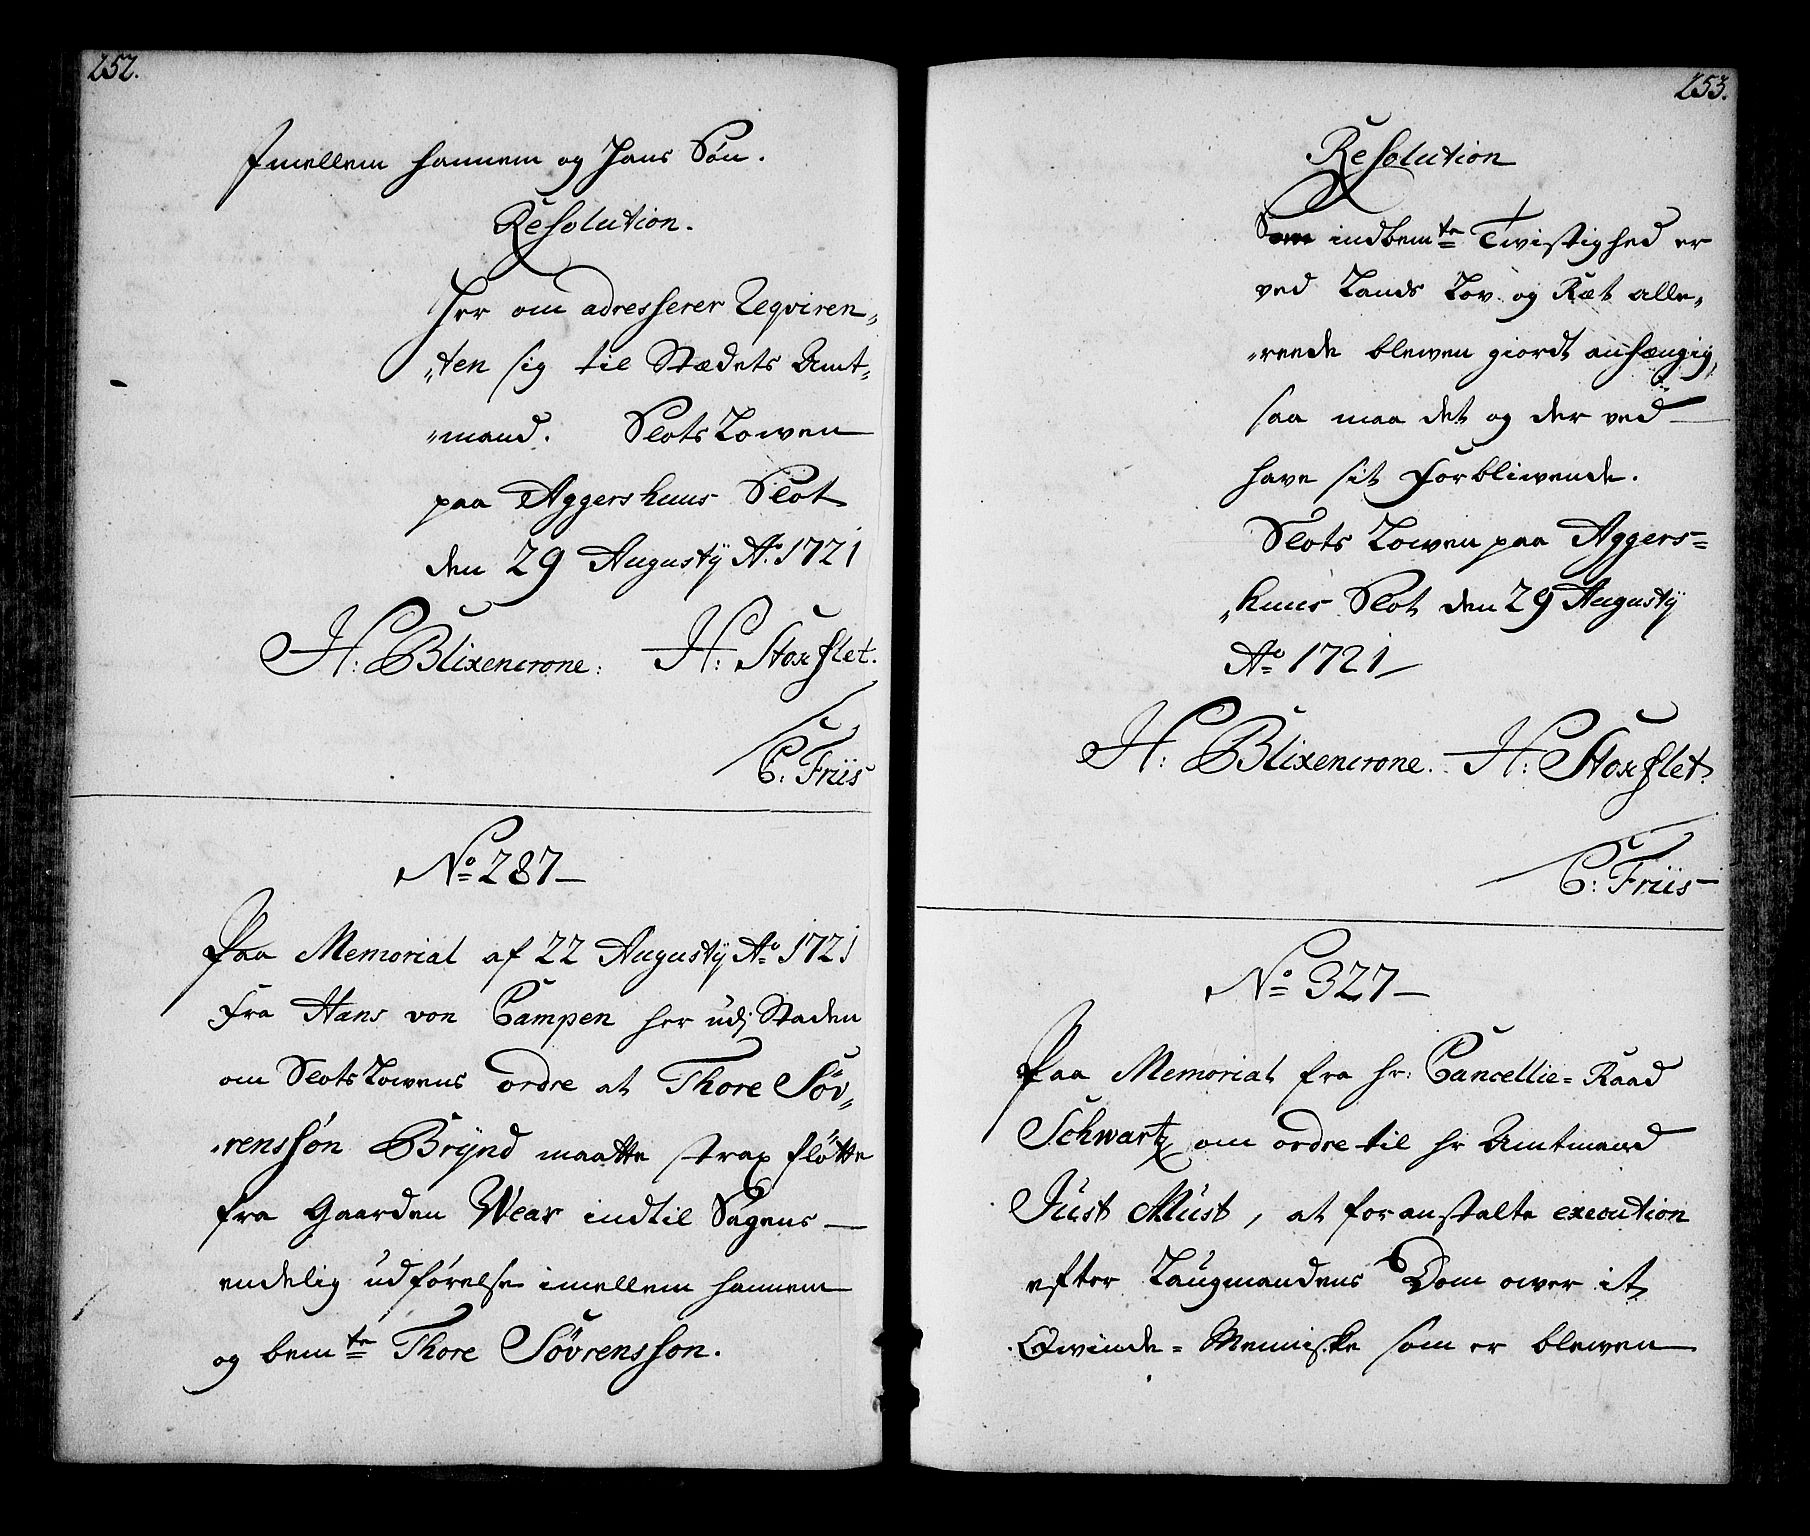 252.
Imellem hannem og hans Søn.
Resolution.
Her om adresserer Reqviren„
„ten sig til Stædets Amt„
„mand. Slots Lowen
paa Aggershuus Slot
den 29 Augustÿ Aº. 1721
H: Blixencrone: H: Storflet.
C: Friis
Nº 287
Paa Memorial af 22 Augustÿ Aº 1721
Fra Hans von Campen her udj Staden
om Slots Lowens ordre at Thore Søv„
„renssøn Brÿnd maatte strax fløtte
fra Gaarden Wear indtil Sagens
endelig udførelse imellem hannem
og bemte Thore Søvrensson.
253.
Resolution
Som indbemte Twistighed er
ved Lands Lov og Ræt alle„
„reede blewen giordt anhængig,
saa maa det og der ved
have sit Forbliwende.
Slots Lowen paa Aggers=
„huus Slot den 29 Augustÿ
Aº 1721
H: Blixencrone. H: Storflet.
C: Friis
Nº 327
Paa Memorial fra hr: Cancellie=Raad
Schwartz om ordre til hr Amtmand
Just Must, at foranstalte execution
efter Laugmandens Dom ower it
Qwinde=Menniske som er blewen